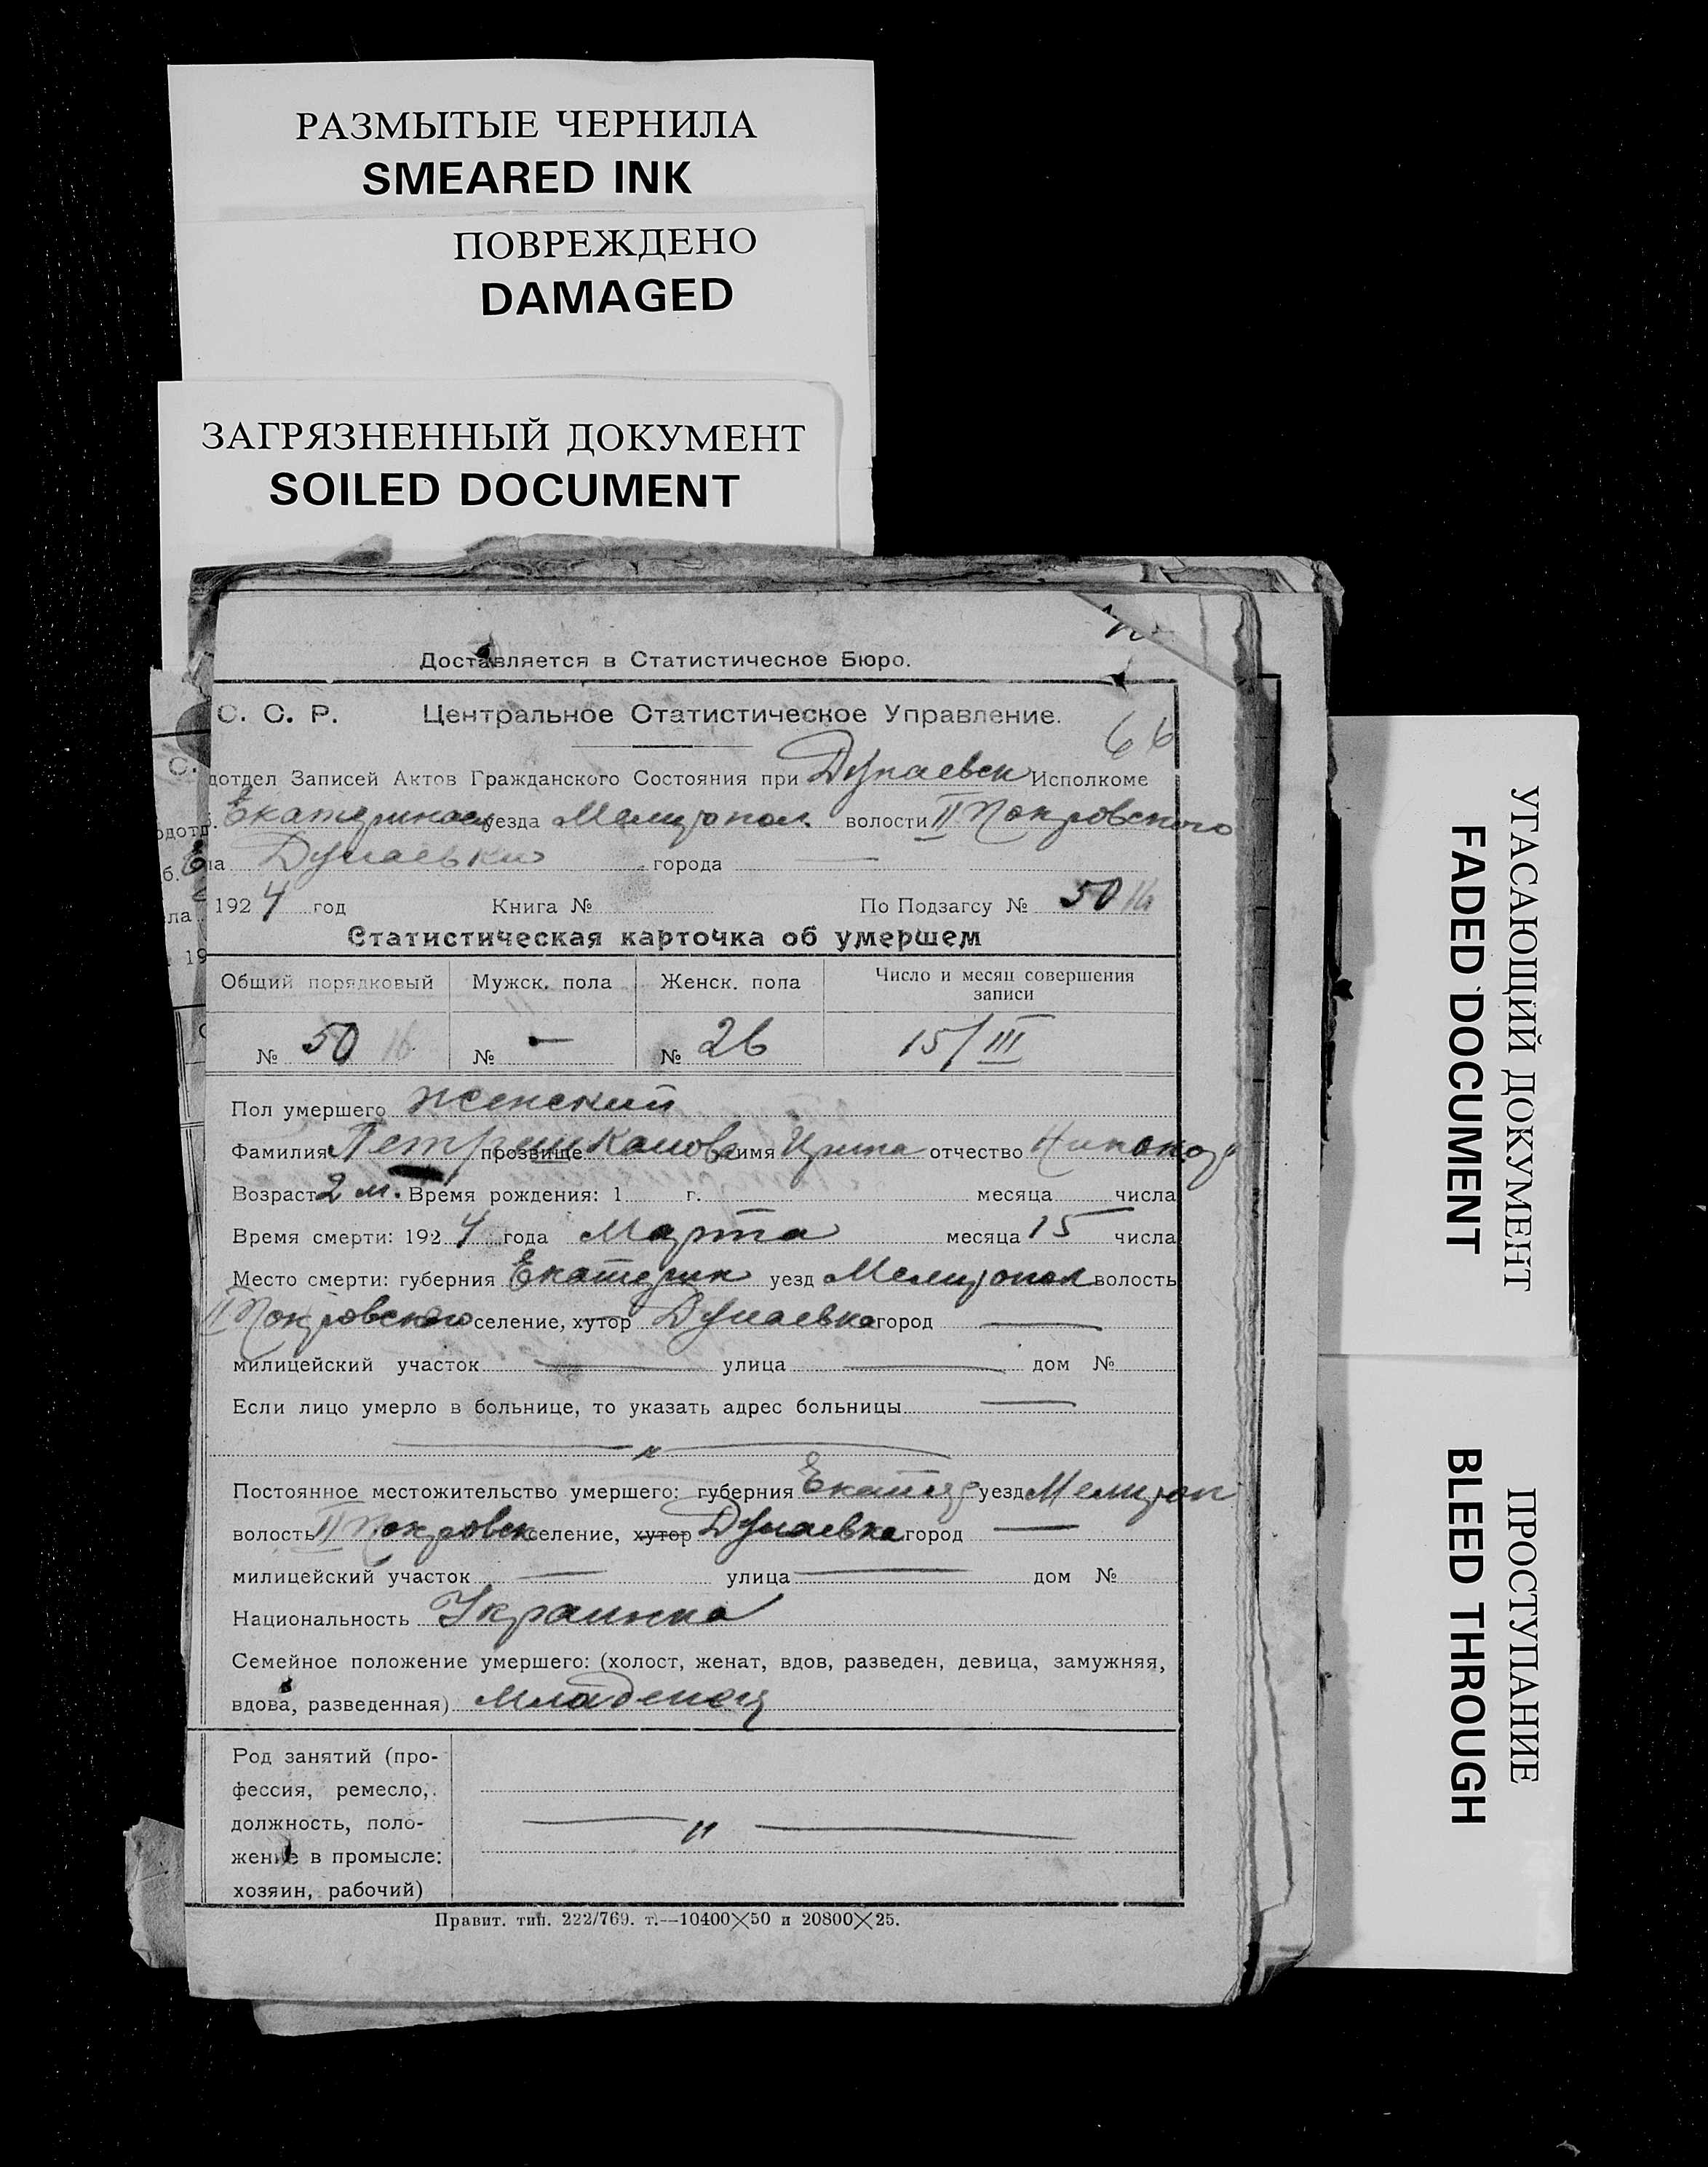 РАЗМЫТЫЕ ЧЕРНИЛА
SMEARED INK
ПОВРЕЖДЕНО
DAMAGED
ЗАГРЯЗНЕННЫЙ ДОКУМЕНТ
SOILED DOCUMENT
Доставляется в Статистическое Бюро.
С. С. Р. Центральное Статистическое Управление.
66
дотдел Записей Актов Гражданского Состояния при Дунаевск Исполкоме
Екатеринос уезда Мелитопол. волости II Покровского
ла Дунаевки города —
1924 год Книга № По Подзагсу № 50
Статистическая карточка об умершем
Общий порядковый Мужск. пола Женск. пола Число и месяц совершения записи
№ 50 № — № 26 15/III
Пол умершего женский
Фамилия Петрешкалова прозвище имя Ирина отчество
Возраст 2 м. Время рождения: 1 г. месяца числа
Время смерти: 1924 года Марта месяца 15 числа
Место смерти: губерния Екатерин уезд Мелитопол волость
II Покровского селение, хутор Дунаевка город —
милицейский участок — улица — дом №
Если лицо умерло в больнице, то указать адрес больницы —
— " —
Постоянное местожительство умершего: губерния Екатер уезд Мелитоп
волость II Покровск селение, хутор Дунаевка город —
милицейский участок — улица — дом №
Национальность Украинка
Семейное положение умершего: (холост, женат, вдов, разведен, девица, замужняя,
вдова, разведенная) младенец
Род занятий (про-
фессия, ремесло,
должность, поло-
жение в промысле:
хозяин, рабочий)
— " —
Правит. тип. 222/769. т.—10400×50 и 20800×25.
УГАСАЮЩИЙ ДОКУМЕНТ
FADED DOCUMENT
ПРОСТУПАНИЕ
BLEED THROUGH